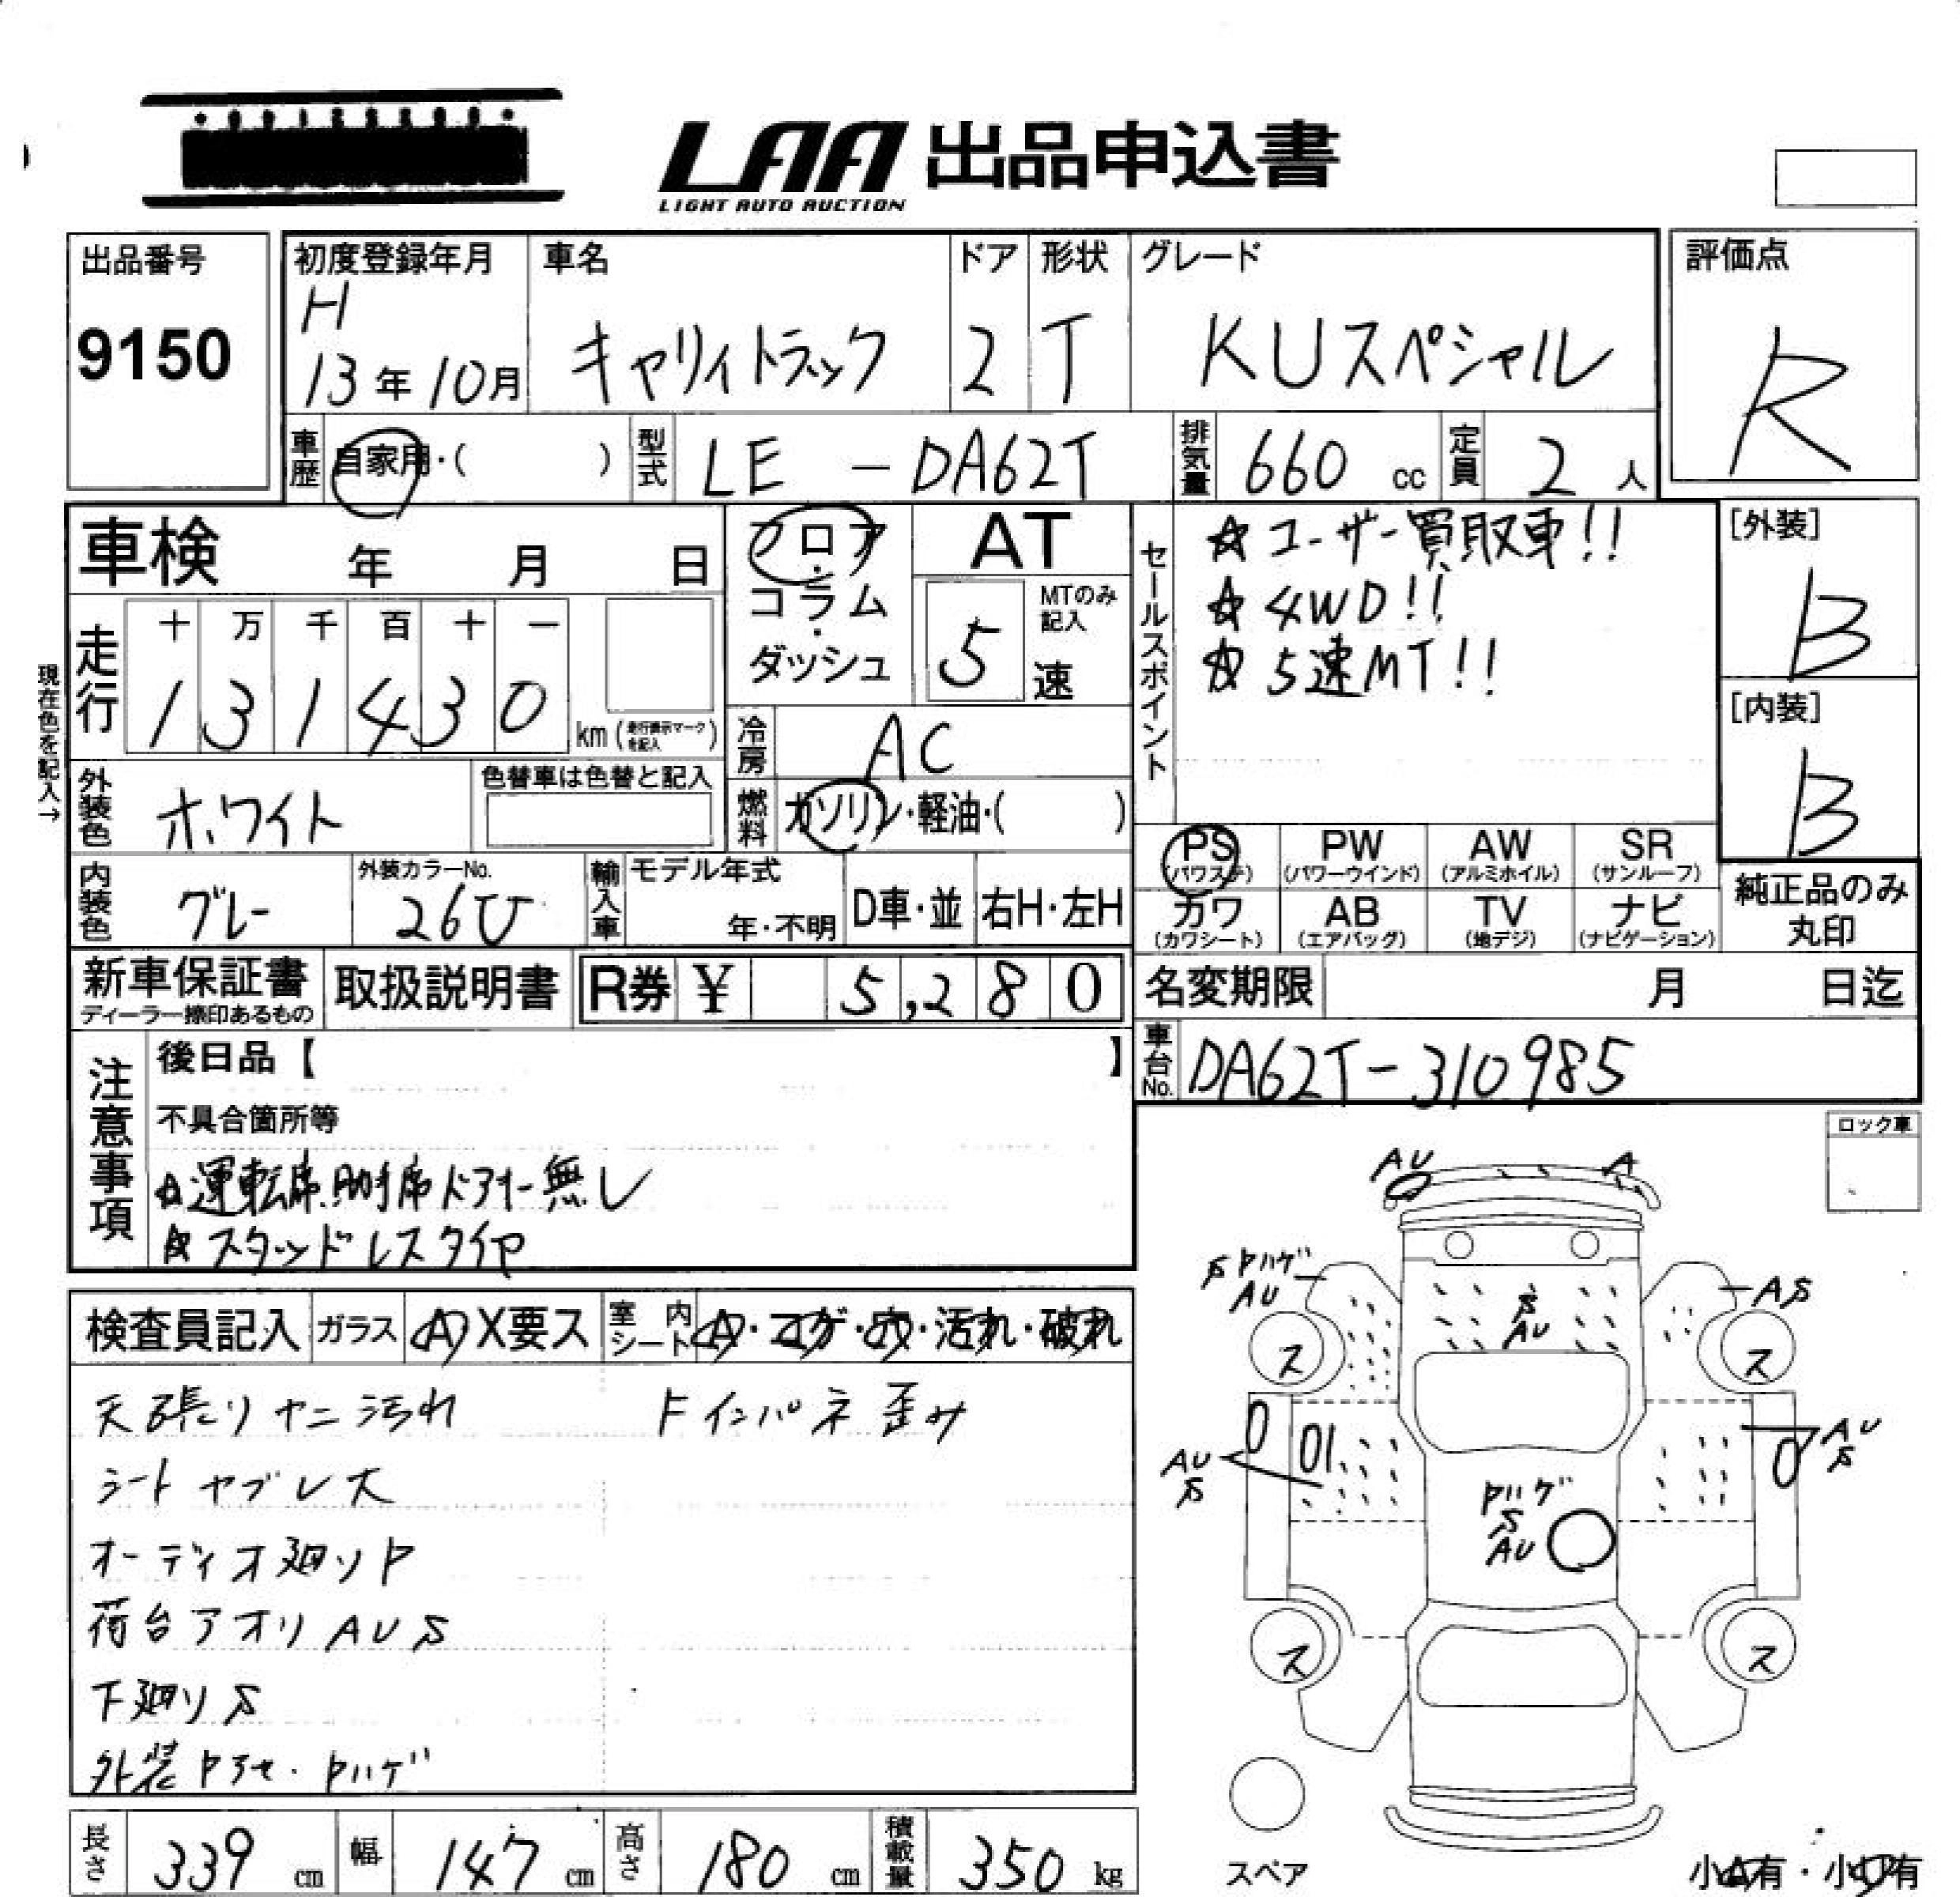 LAA 出品申込書
LIGHT AUTO AUCTION
出品番号
9150
初度登録年月
H
13年10月
車名
キャリイトラック
ドア
2
形状
T
グレード
KUスペシャル
評価点
R
車歴
自家用・( )
型式
LE - DA62T
排気量
660 cc
定員
2 人
車検 年 月 日
フロア・コラム・ダッシュ
AT
5
MTのみ記入
速
セールスポイント
☆ユーザー買取車!!
☆4WD!!
☆5速MT!!
[外装]
B
[内装]
B
現在色を記入→
走行
十 万 千 百 十 一
1 3 1 4 3 0
km (走行表示マークを記入)
冷房
AC
外装色
ホワイト
色替車は色替と記入
燃料
ガソリン・軽油・( )
内装色
グレー
外装カラーNo.
26U
輸入車
モデル年式
年・不明
D車・並
右H・左H
PS
(パワステ)
PW
(パワーウインド)
AW
(アルミホイル)
SR
(サンルーフ)
カワ
(カワシート)
AB
(エアバッグ)
TV
(地デジ)
ナビ
(ナビゲーション)
純正品のみ
丸印
新車保証書
ディーラー捺印あるもの
取扱説明書
R券 ¥ 5,280
名変期限 月 日迄
車台No.
DA62T-310985
注意事項
後日品【 】
不具合箇所等
☆運転席.助手席ドアオー無し
☆スタッドレスタイヤ
ロック車
検査員記入
ガラス
A X要ス
室内シート
A・コゲ・穴・汚れ・破れ
天張りヤニ汚れ
Fインパネ歪み
シートヤブレ大
オーディオ廻りP
荷台アオリAUS
下廻りS
外装Pアセ・Pハゲ
AU
A
S Pハゲ
AU
S
AU
AS
ス
ス
AU
S
AU
S
Pハゲ
S
AU
ス
ス
スペア
小A有・小U有
長さ
339 cm
幅
147 cm
高さ
180 cm
積載量
350 kg